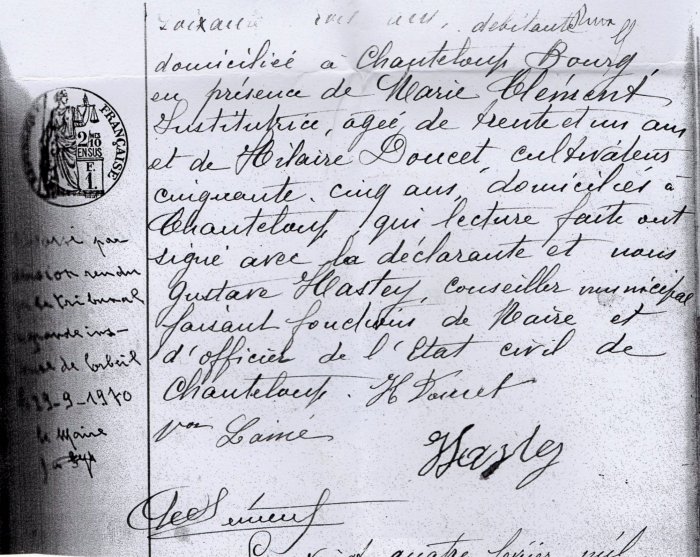 soixante trois ans, débitante
domiciliée à Chanteloup Bourg
en présence de Marie Clément
Institutrice, agée de trente et un ans
et de Hilaire Doucet, cultivateur
cinquante-cinq ans, domiciliés à
Chanteloup, qui lecture faite ont
signé avec la déclarante et nous
Gustave Hastey, conseiller municipal
faisant fonctions de Maire et
d'officier de l'Etat civil de
Chanteloup. H Doucet
Vve Lainé
Hastey
Clément
quatre février mil
FRANÇAISE
2/10
EN SUS
F.
1
par
rendu
tribunal
grande ins-
de Corbeil
29-9-1970
le Maire